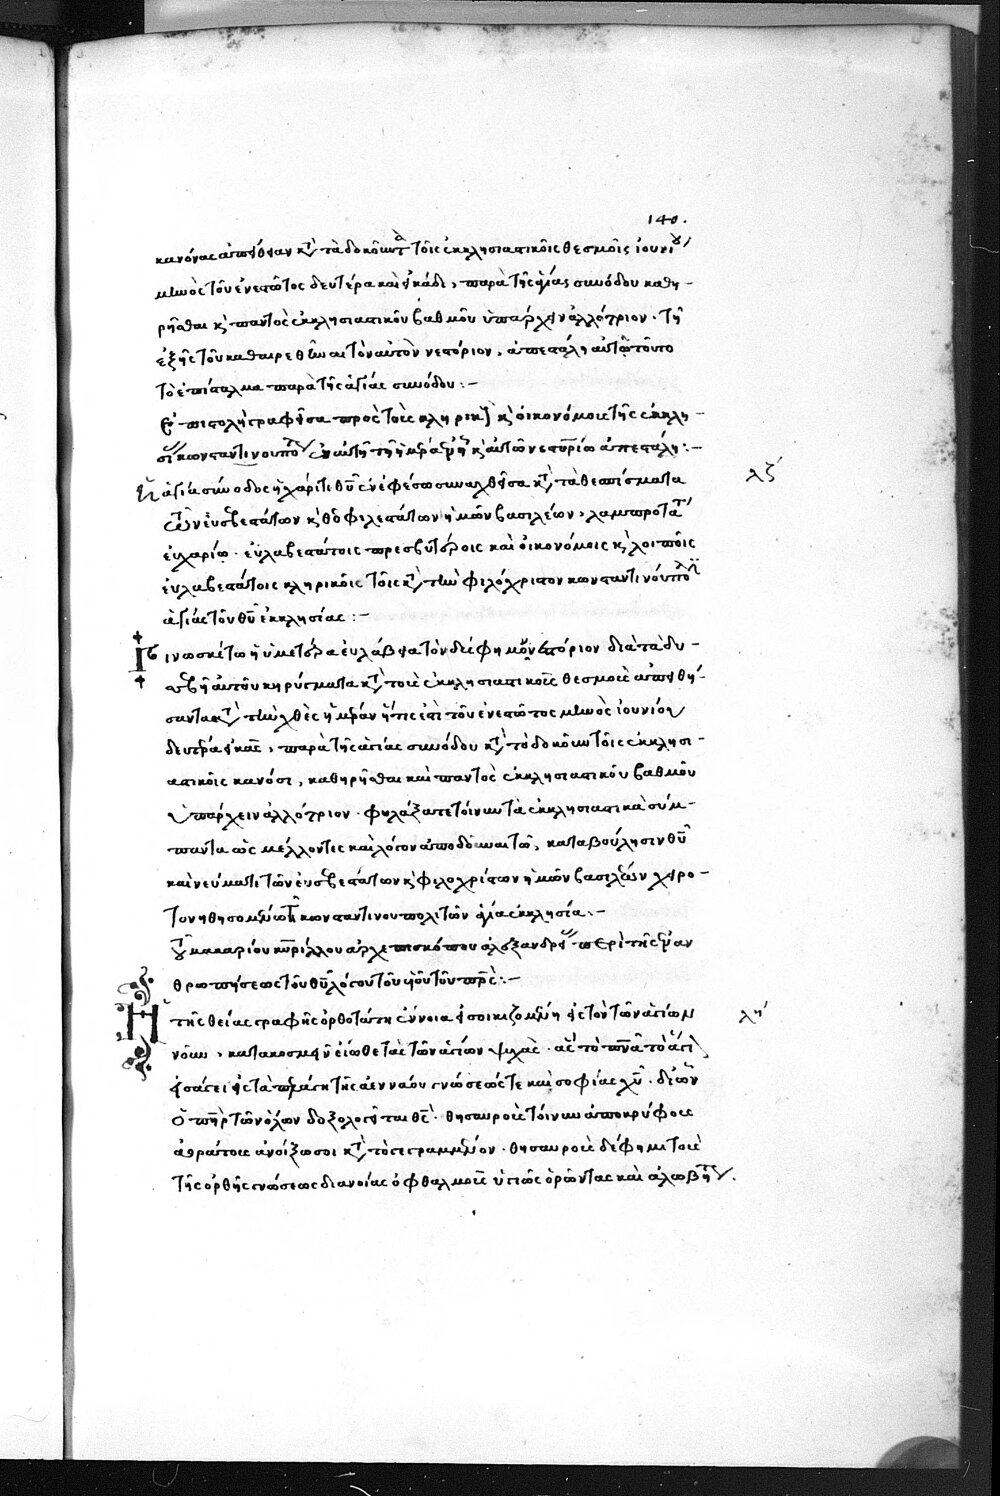 140.
κανόνας ἀπείθειαν κτ̀ τὰ δοκοῦντα τοῖς ἐκκλησιαστικοῖς θεσμοῖς ἰουνίου
μηνὸς τοῦ ἐνεστῶτος δευτέρα καὶ εἰκάδι, παρὰ τῆς ἁγίας συνόδου καθῃ-
ρῆσθαι κὶ παντὸς ἐκκλησιαστικοῦ βαθμοῦ ὑπάρχειν ἀλλότριον. τῇ
ἑξῆς τοῦ καθαιρεθῆναι τὸν αὐτὸν νεστόριον, ἀπεστάλη αὐτῷ τοῦτο
τὸ ἐπίσταλμα παρὰ τῆς ἁγίας συνόδου:-
Ἐπιστολὴ γραφεῖσα πρὸς τοὺς κληρικ κὶ οἰκονόμους τῆς ἐκκλη-
σι κωνσταντινουπό ἐν αὐτῇ τῇ ἡμέρα ἐν ᾗ κὶ αὐτῶ νεστορίω ἀπεστάλη:-
λζ
Ἡ ἁγία σύνοδος ἡ χάριτι θῦ ἐν ἐφέσω συναχθεῖσα κτ̀ τὰ θεσπίσματα
τῶν εὐσεβεστάτων κὶ θεοφιλεστάτων ἡμῶν βασιλέων, λαμπροτάτ
εὐχαρίω. εὐλαβεστάτοις πρεσβυτέροις καὶ οἰκονόμοις κὶ λοιποῖς
εὐλαβεστάτοις κληρικοῖς τοῖς κτ̀ τὴν φιλόχριστον κωνσταντινούπολ
ἁγίας τοῦ θῦ ἐκκλησίας:-
Γινωσκέτω ἡ ὑμετέρα εὐλάβεια τὸν δύσφημον νεστόριον διὰ τὰ δυ-
σσεβῆ αὐτοῦ κηρύγματα κτ̀ τοὺς ἐκκλησιαστικοὺς θεσμοὺς ἀπειθή-
σαντα κτ̀ τὴν χθὲς ἡμέραν ἥτις ἐστὶ τοῦ ἐνεστῶτος μηνὸς ἰουνίου
δευτέρα εἰκὰς, παρὰ τῆς ἁγίας συνόδου κτ̀ τὸ δοκοῦν τοῖς ἐκκλησι-
αστικοῖς κανόσι, καθῃρῆσθαι καὶ παντὸς ἐκκλησιαστικοῦ βαθμοῦ
ὑπάρχειν ἀλλότριον. φυλάξατε τοίνυν τὰ ἐκκλησιαστικὰ σύμ-
παντα ὡς μέλλοντες καὶ λόγον ἀποδοῦναι τῶ, κατα βούλησιν θῦ
καὶ νεύματι τῶν εὐσεβεστάτων κὶ φιλοχρίστων ἡμῶν βασιλέων χειρο-
τονηθησομένω τῇ κωνσταντινουπολιτῶν ἁγία ἐκκλησία.-
τοῦ μακαρίου κυρίλλου ἀρχιεπισκόπου ἀλεξανδρεί περὶ τῆς ἐναν
θρωπήσεως τοῦ θῦ λόγου τοῦ υἱοῦ τοῦ πρς:-
λη
Ἡ τῆς θείας γραφῆς ὀρθοτάτη ἔννοια εἰσοικιζομένη εἰς τὸν τῶν ἁγίων
νοῦν, κατακοσμεῖν εἴωθε τὰς τῶν ἁγίων ψυχάς. ἃς τὸ πνα τὸ ἅγι
εἰσάγει εἰς τὰ ταμεῖα τῆς ἀεννάου γνώσεώς τε καὶ σοφίας χῦ. δι' ὧν
ὁ πηρ τῶν ὅλων δοξολογεῖται θς. θησαυροὺς τοίνυν ἀποκρύφους
ἀοράτους ἀνοίξωσι κτ̀ τὸ γεγραμμένον. θησαυροὺς δέ φημι τοὺς
τῆς ὀρθῆς γνώσεως διανοίας ὀφθαλμοὺς ὑγιῶς ὁρῶντας καὶ ἀλωβήτ.